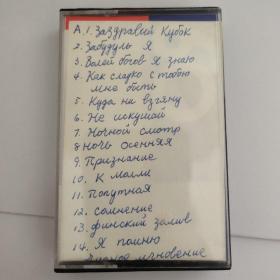 А. 1. Заздравный Кубок
2. Забудуль Я
3. Волей богов Я знаю
4. Как сладко с тобою
мне быть
5. Куда ни взгляну
6. Не искушай
7. Ночной смотр
8 Ночь осенняя
9. Признание
10. К Молли
11. Попутная
12. Сомнение
13. Финский залив
14. Я помню
чудное мгновение